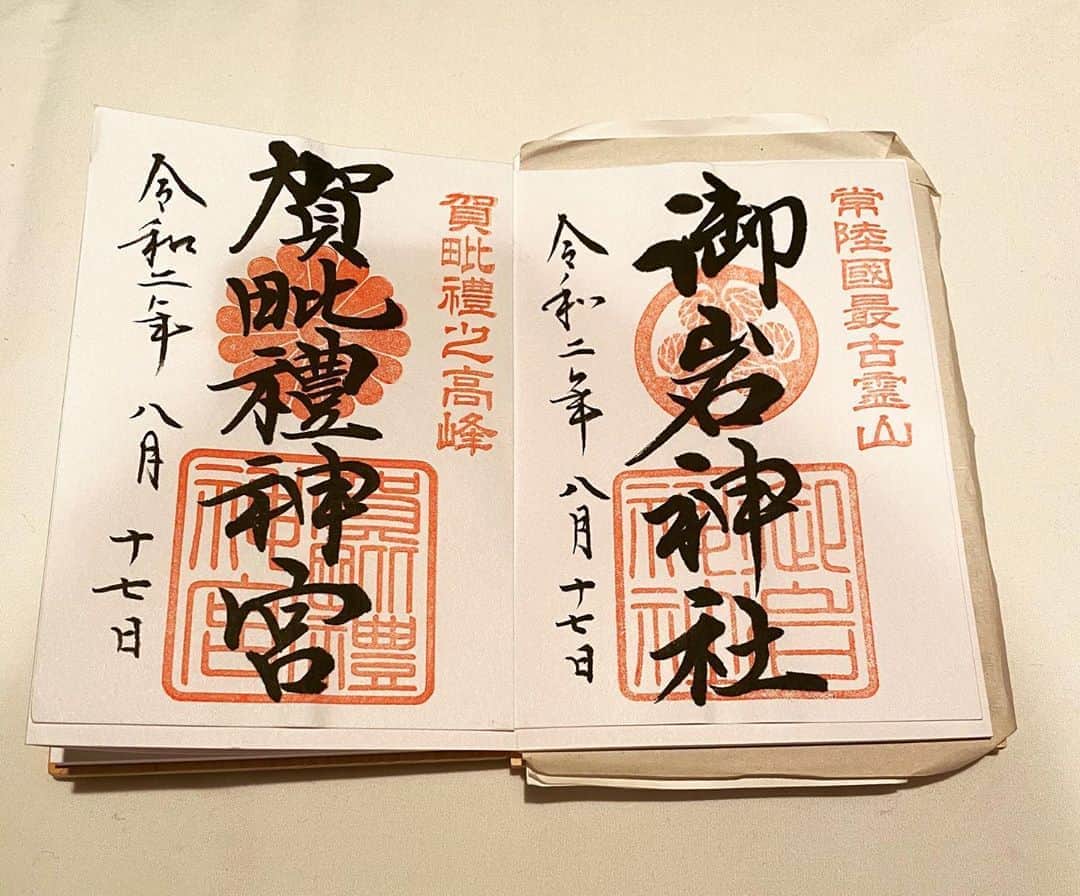 常陸國最古霊山
御岩神社
御岩神社
令和二年 八月 十七日
賀毗禮之高峰
賀毗禮神宮
賀毗禮神宮
令和二年 八月 十七日